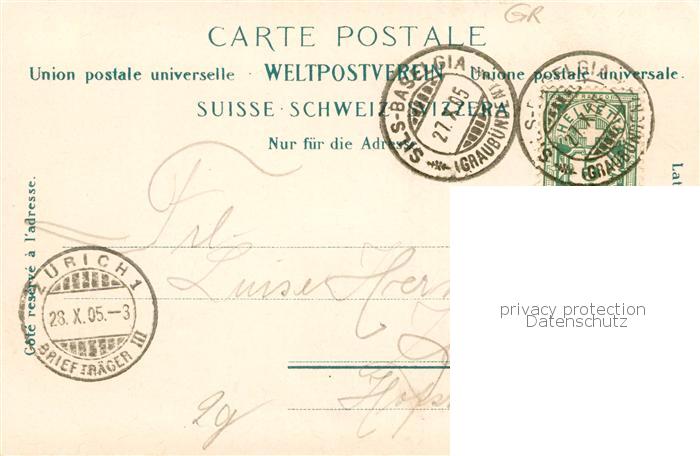 GR
CARTE POSTALE
Union postale universelle · WELTPOSTVEREIN · Unione postale universale.
SUISSE · SCHWEIZ · SVIZZERA
Nur für die Adresse
SILS-BASELGIA
27.X.05
(GRAUBÜNDEN)
HELVETIA
(GRAUBÜNDEN)
Côté réservé à l'adresse.
Lat
Frl.
Luise Her
ZÜRICH 1
28.X.05.-3
BRIEFTRÄGER III
Hofs
2g
privacy protection
Datenschutz